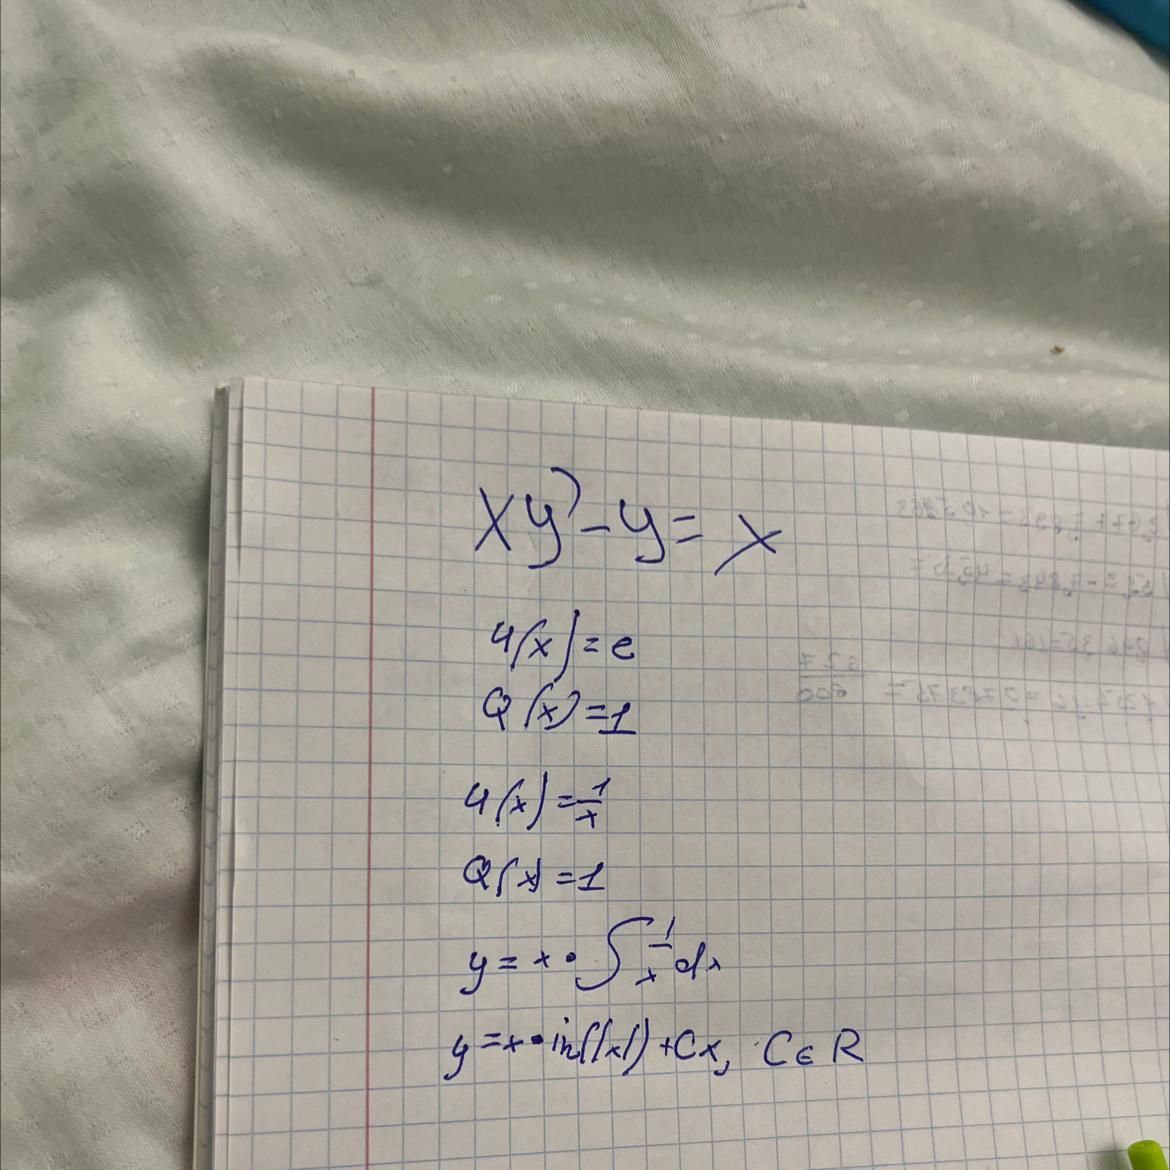 xy' - y = x
u(x) = e
Q(x) = 1
u(x) = 1/x
Q(x) = 1
y = x · ∫ 1/x dx
y = x · in(|x|) + Cx, C ∈ R